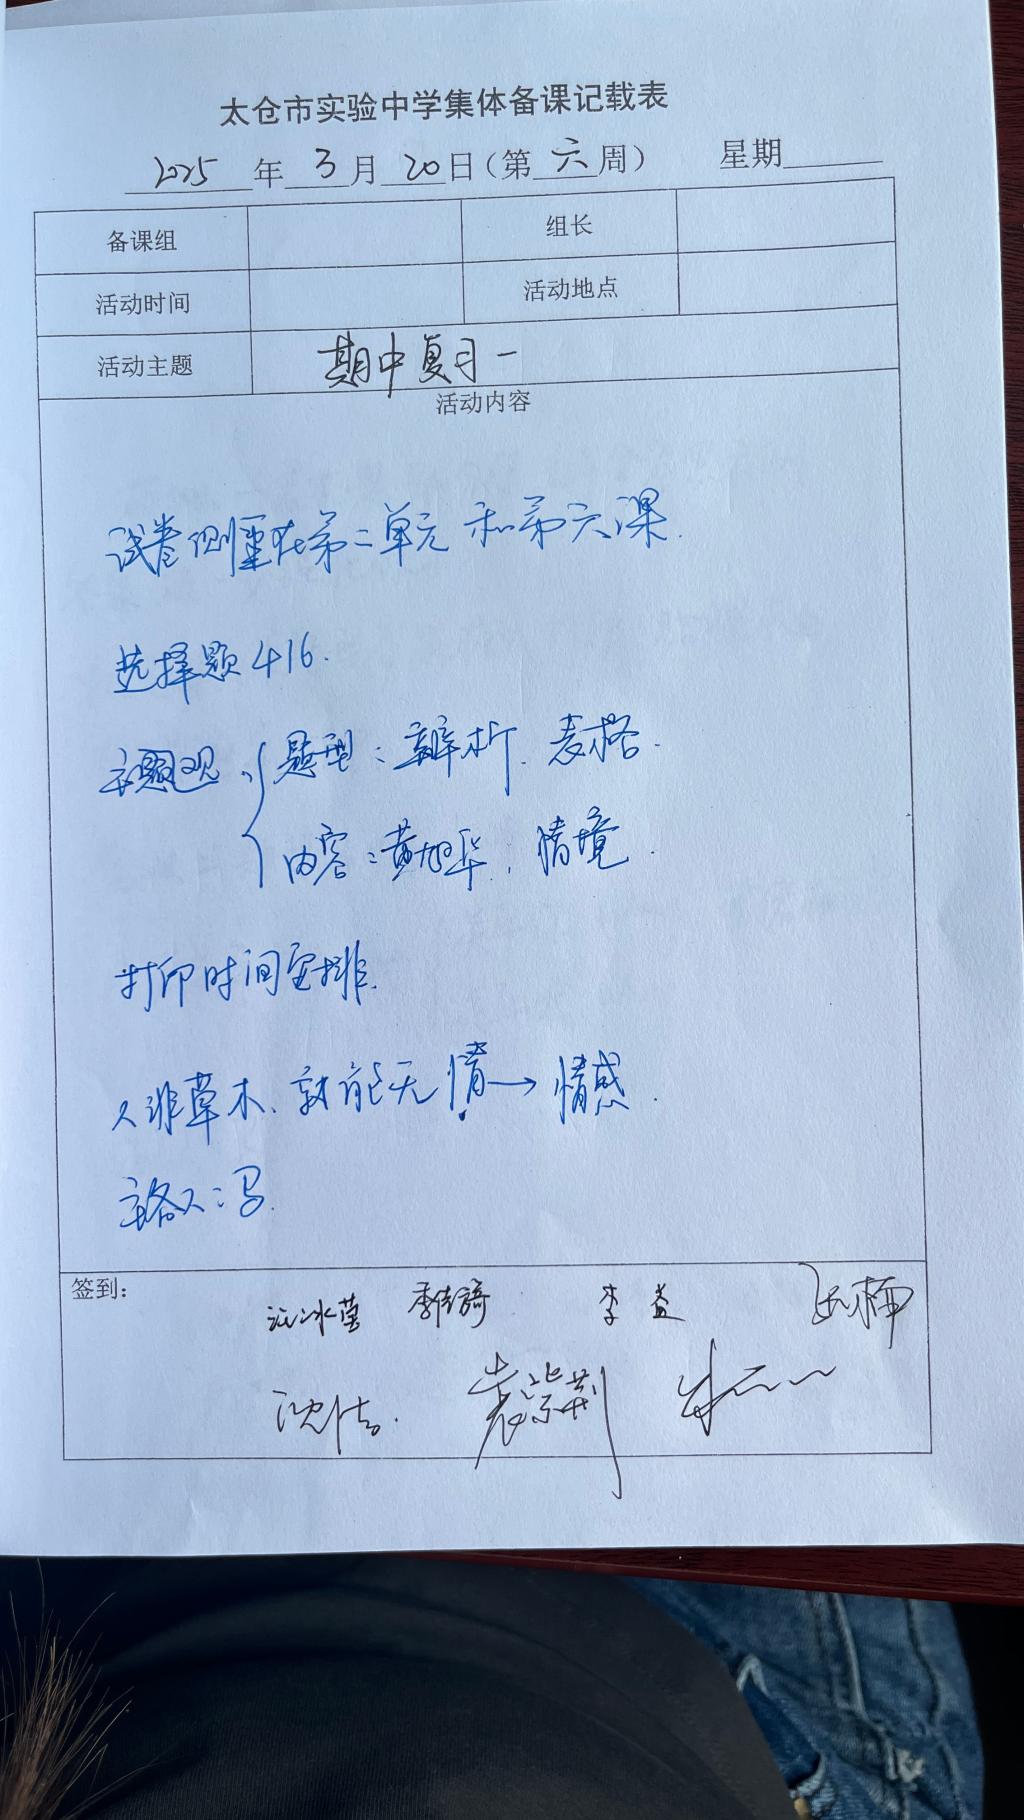 太仓市实验中学集体备课记载表
2025年3月20日（第六周） 星期
备课组 组长
活动时间 活动地点
活动主题 期中复习一
活动内容
试卷侧重在第二单元和第六课.
选择题416.
题型：辨析、表格.
内容：黄旭华、情境.
打印时间安排.
人非草木、孰能无情→情感.
签到：
李益
沈洁. 袁紫荆